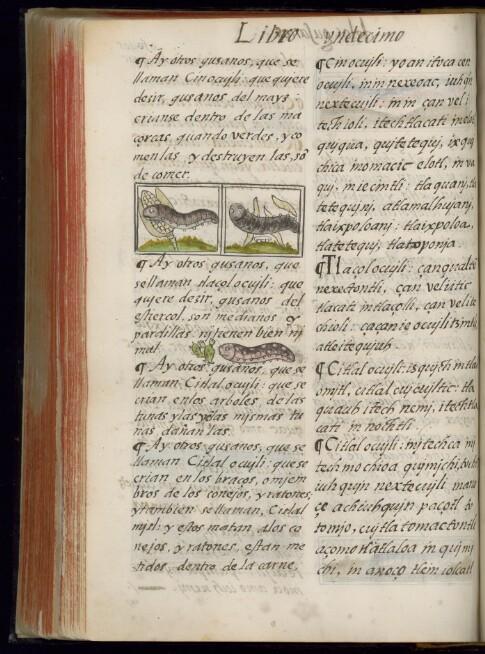 Libro yndecimo
¶ Ay otros gusanos, que se
llaman Cinocujli: que quiere
desir, gusanos del mays:
crianse dentro de las ma
corcas, quando verdes, y co
menlas y destruyen las, sõ
de comer.
¶ Ay otros gusanos, que
se llaman tlaçol ocujli: que
quiere desir, gusanos del
estiercol, son medianos y
pardillos nj tienen bien nj
mal.
¶ Ay otros gusanos, que se
llaman Citlal ocujli: que se
crian en los arboles de las
tunas y las mismas tu
nas dañan las.
¶ Ay otros gusanos, que se
llaman Citlal ocujli: que se
crian en los braços, o mjem
bros de los conejos, y ratones;
y tambien se llaman, Citlal
mjtl: y estos matan a los co
nejos, y ratones, estan me
tidos dentro de la carne.
¶ Cinocujli: yoan itoca cen
ocujli, in mnexeoac, iuhqn
nextecujli: in in çan vel i
techioli, itech tlacati in elo
quiqua, quitetequj, ix quj
chica in omacic elotl, in va
quj, miecintli: tlaquanj, tla
tetequjnj,
tlaixpoloanj: tlaixpoloa,
tlatetequj, tlatoponja.
¶ Tlaçol ocujli: çan qualtõ
nexectontli, çan vel itic
tlacati in tlaçolli, çan vel ite
chioli: ça çan ie ocujli tzintli
atle itequjuh.
¶ Citlal ocujli:
omjtl, citlal cujcujltic: tla
quauh itech nemj, itech tla
cati in nochtli.
¶ Citlal ocujli: intechca nj
tech mochioa qujmjchi, tochi
iuhqujn nextecujli,
çe achiuhqujn paçotl, to
tomjo, cujtla tomactontli
açomo tlatlaloa in qujmj
chi, in anoço tlein iolcatl